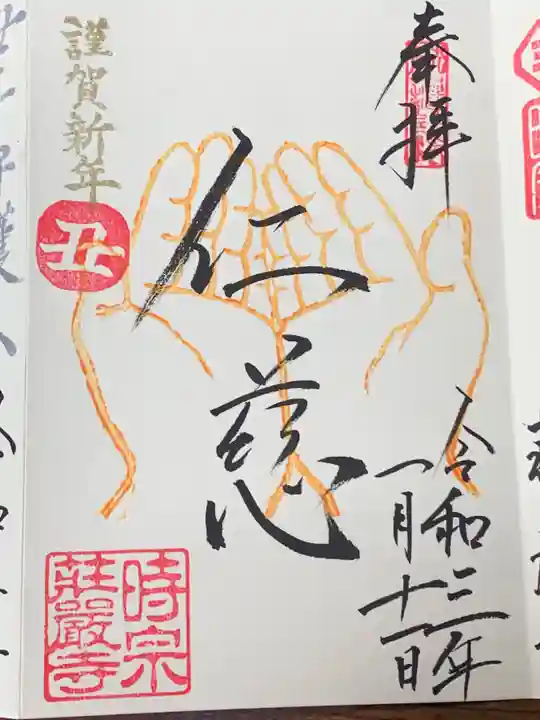 奉拝
仁慈
令和三年
一月十一日
謹賀新年
丑
時宗
荘嚴寺